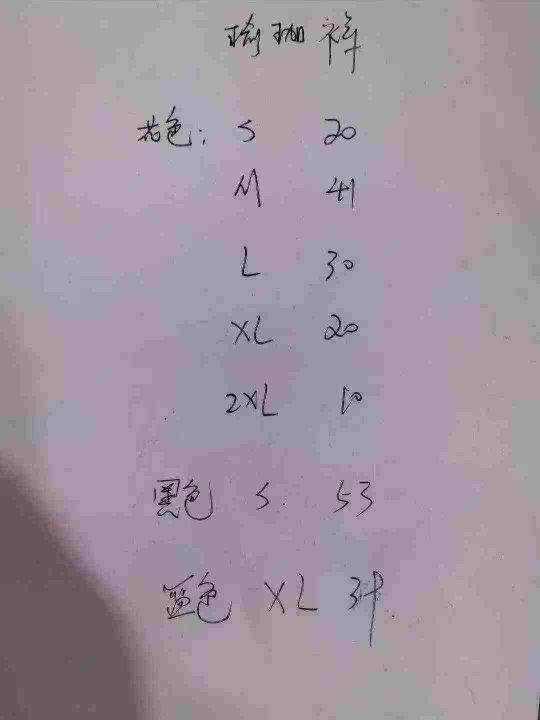 瑜珈祥
花色: S 20
M 41
L 30
XL 20
2XL 10
黑色 S 53
蓝色 XL